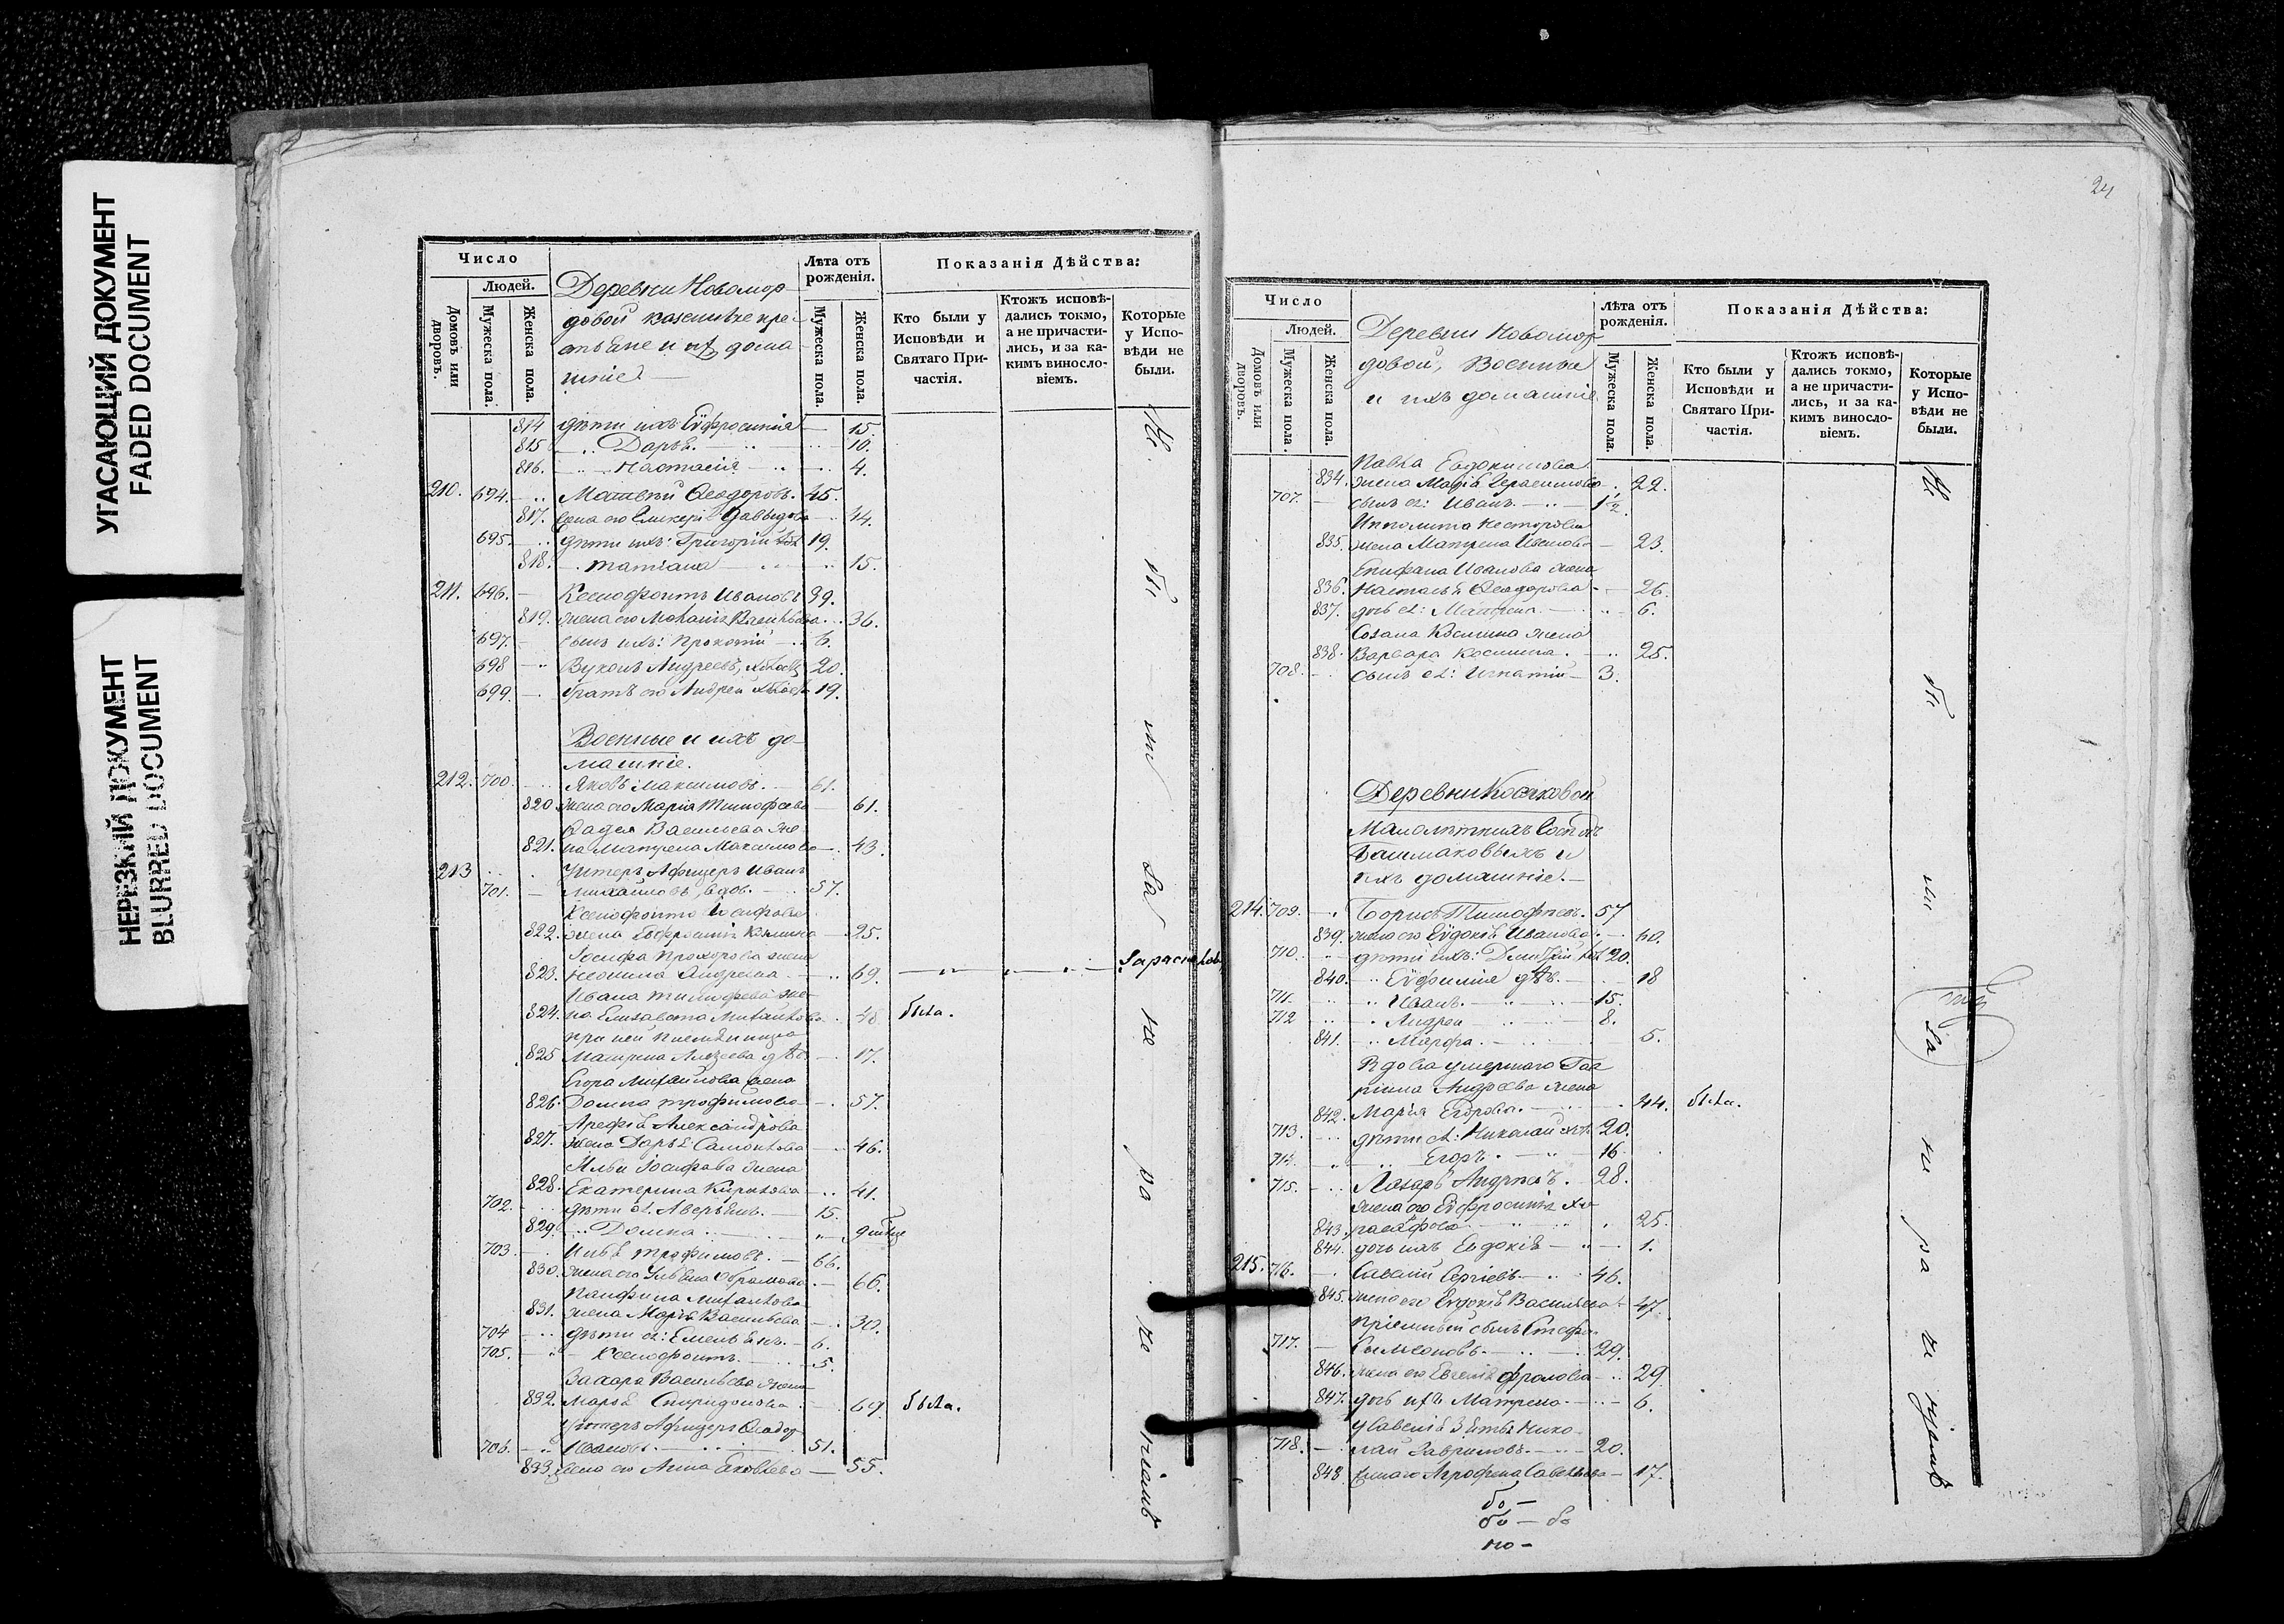 УГАСАЮЩИЙ ДОКУМЕНТ
FADED DOCUMENT
НЕРЕЗКИЙ ДОКУМЕНТ
BLURRED DOCUMENT
Число
Людей.
Домовъ или дворовъ.
Мужеска пола.
Женска пола.
Деревни Новомор
довой казенные кре
стьяне и их дома
шние
Лѣта отъ рожденія.
Мужеска пола.
Женска пола.
Показанія Дѣйства:
Кто были у Исповѣди и Святаго Причастія.
Ктожъ исповѣдались токмо, а не причастились, и за какимъ винословіемъ.
Которые у Исповѣди не были.
814 дѣти ихъ Евфросинія 15.
815 Дарья 10.
816. Настасія 4.
210. 694. Матвей Ѳеодоровъ. 45.
817. жена его Гликерія Давыдова 44.
695. дѣти ихъ: Григорій хол 19.
818. Татіана 15.
211. 696. Ксенофонтъ Ивановъ 39.
819. жена его Меланія Васильева 36.
697. сынъ ихъ: Прокопій 6.
698 Вуколъ Андреевъ, холостъ 20.
699. братъ его Андрей холостъ 19.
Военные и ихъ до
машніе.
212. 700. Яковъ Максимовъ. 61.
820 жена его Марія Тимофеева 61.
Васильева же
821. на Матрена Максимова 43.
213 Унтеръ Афицеръ Иванъ
701. Михайловъ, вдов. 57.
Ксенофонта Осифова
822. жена Евфросинія 25.
Іосифа Прохорова жена
823. Неонила Андреева 69. за раскол
Ивана Тимофеева же
824. на Елизавета Михайлова 48 была.
при ней племянница
825 Матрена Алексеева дѣв. 17.
Егора Михайлова жена
826. Домна Трофимова 57.
Арефія Александрова
827. жена Дарья Самойлова 46.
Ильи Іосифова жена
828. Екатерина Кирилова 41.
702. дѣти ея: Аверьянъ. 15.
829. Домна 9
703. Трофимовъ. 66.
830. жена его Ульяна Абрамова 66.
Панфила Михайлова
831. жена Марья Васильева 30.
704 дѣти ея: Емельянъ. 6.
705. Ксенофонтъ. 5.
Захара Васильева жена
832. Марья Спиридонова 69. была.
Унтеръ Афицеръ Ѳеодор
706. Ивановъ. 51.
833. жена его Анна Яковлева 55.
Не бы ли за не ра че ніемъ
24
Число
Людей.
Домовъ или дворовъ.
Мужеска пола
Женска пола.
Деревни Новомор
довой, Военные
и ихъ домашніе
Лѣта отъ рожденія.
Мужеска пола
Женска пола.
Показанія Дѣйства:
Кто были у Исповѣди и Святаго Причастія.
Ктожъ исповѣдались токмо, а не причастились, и за какимъ винословіемъ.
Которые у Исповѣди не были.
Павла Евдокимова
834. жена Марія Герасимова 22.
707. сынъ ея: Иванъ 1½.
Ипполита Несторова
835. жена Матрена Иванова 23.
Епифана Иванова жена
836. Настасья Ѳеодорова 26.
837. дочь ея: 6.
Созона Космина жена
838. Варвара Космина. 25.
708. сынъ ея: Игнатій 3.
Деревни
Малолѣтнихъ Господъ
Башмаковыхъ и
ихъ домашніе.
214. 709. Борисъ Тимофеевъ. 57
839. жена его Евдокія Иванова. 60.
710. дѣти ихъ: Дмитрій хол 20.
840. Евфимія дѣв. 18
711. Иванъ 15.
712 Андрей 8.
841. Марфа. 5.
Вдова умершаго Гав
ріила Андреева жена
842. Марія Егорова. 44. была.
713. дѣти ея: Николай хол. 20.
714. Егоръ. 16.
715. Лазарь Андреевъ. 28.
жена его Евфросинія
843. 25.
844. дочь ихъ Евдокія 1.
215. 716. Савелій Сергіевъ. 46.
845. жена его Евдокія Васильева 47.
Пріемный сынъ Стефан
717. Симеоновъ. 29.
846. жена его Евгенія Фролова 29
847. дочь ихъ Матрена 6.
У Савелія Зять Нико
718. лай Гавриловъ 20.
848 жена его Агрофена Савельева 17.
Не бы ли за не ра че ніемъ